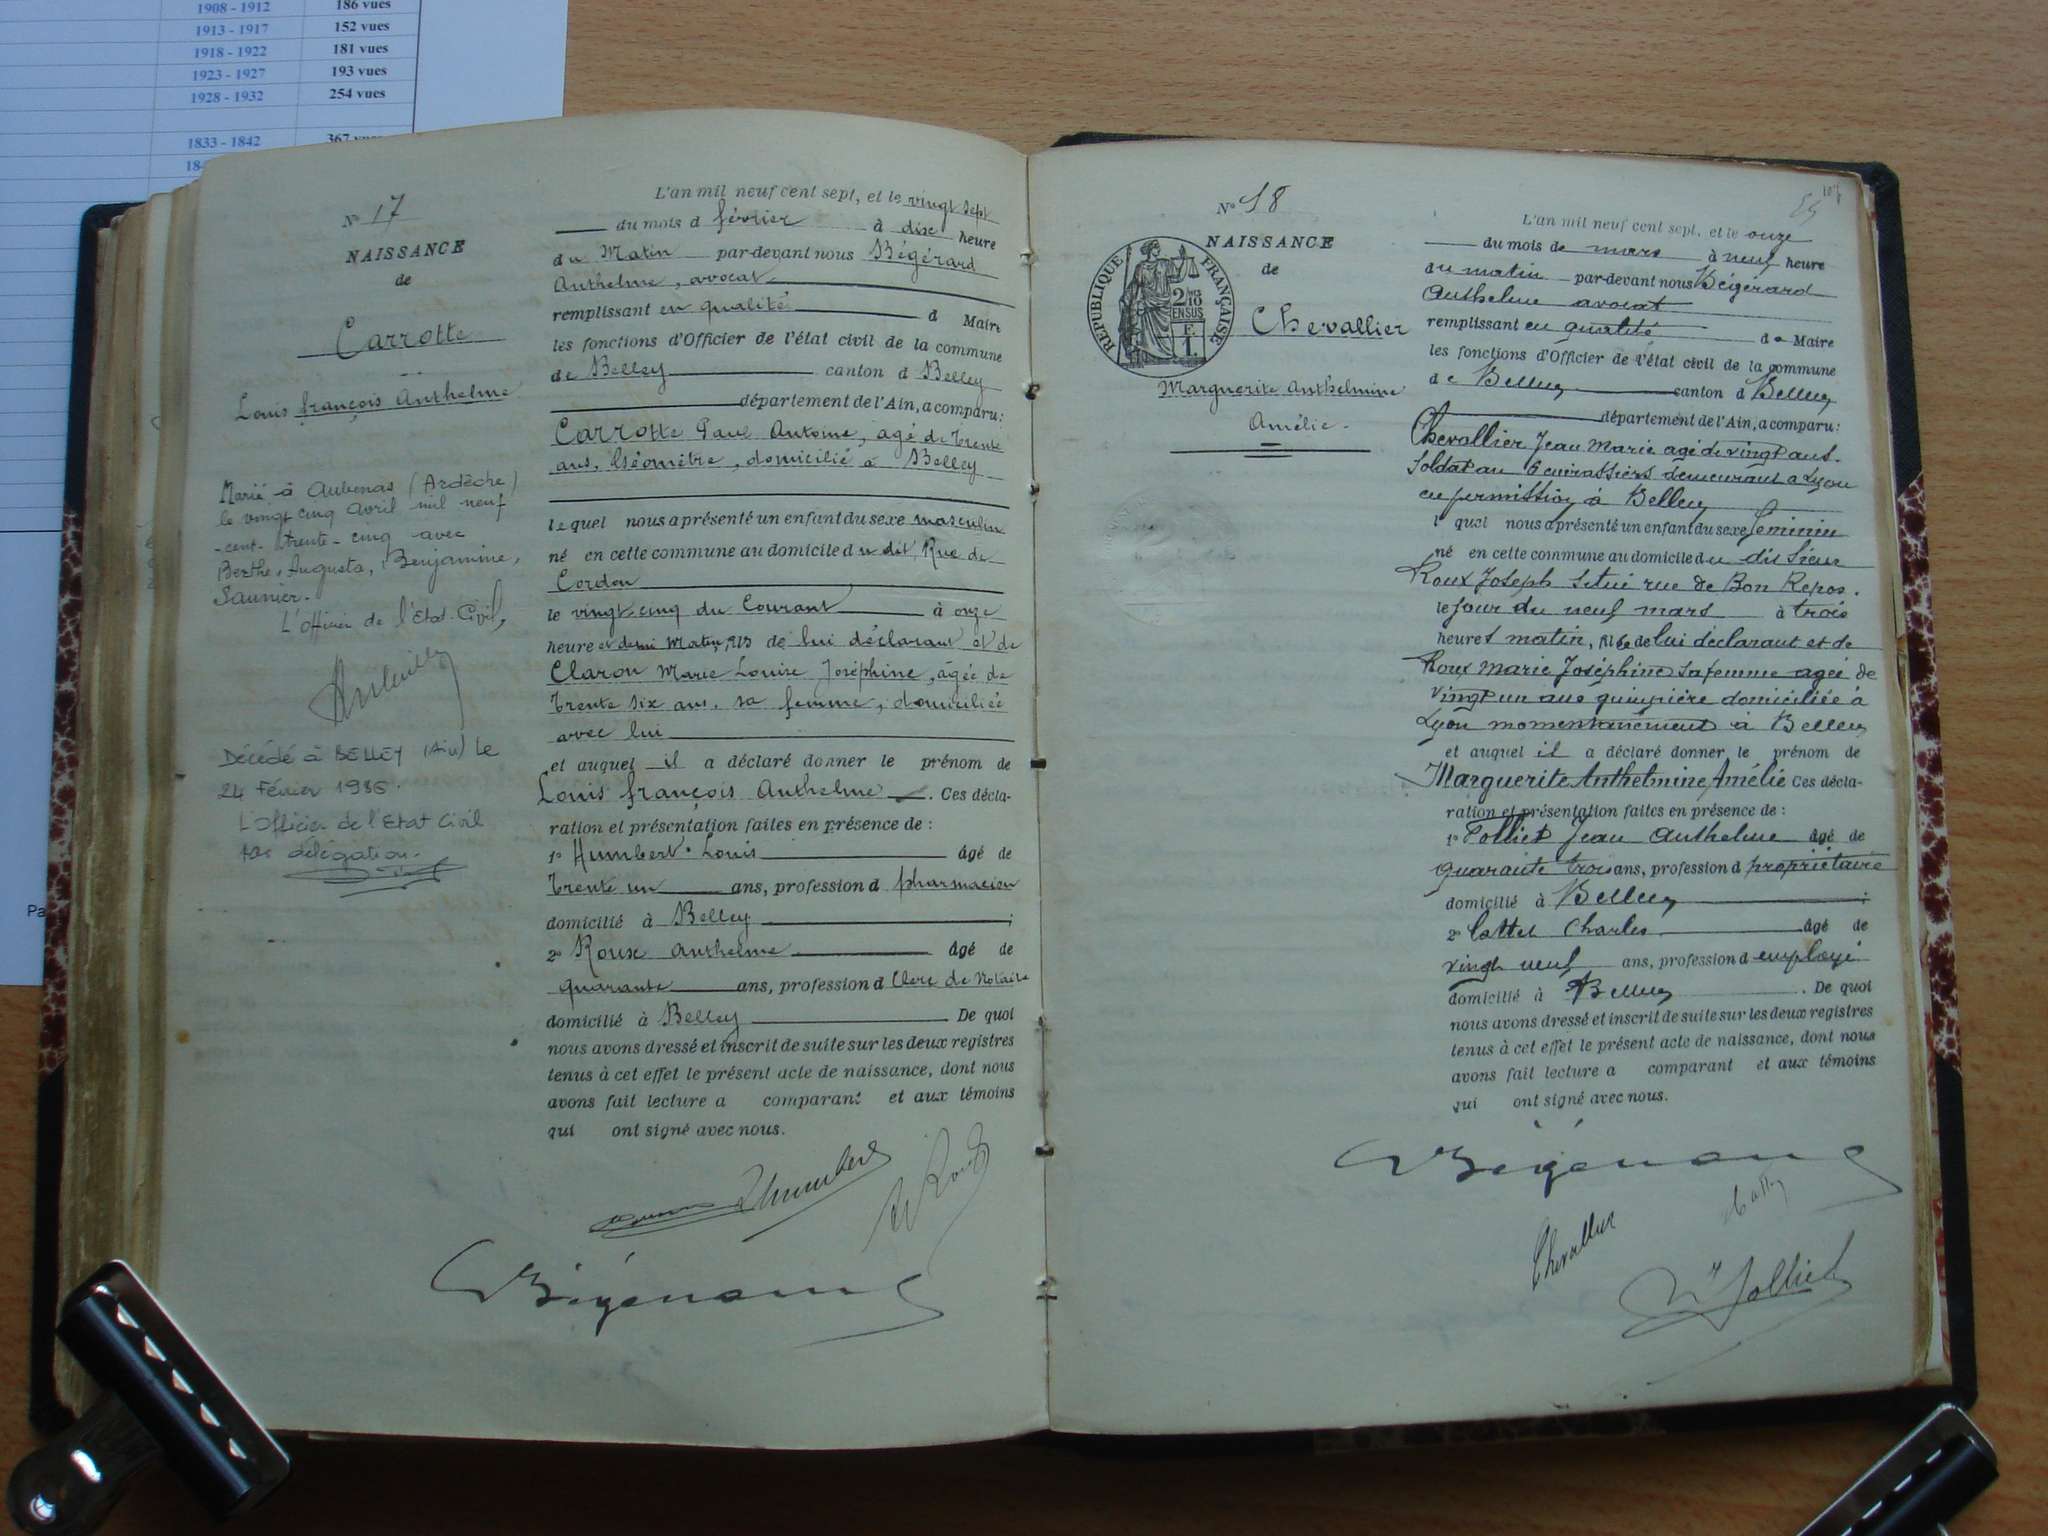 1908 - 1912 186 vues
1913 - 1917 152 vues
1918 - 1922 181 vues
1923 - 1927 193 vues
1928 - 1932 254 vues
1833 - 1842 367 vues
Nº 17
NAISSANCE
de
Carrotte
Louis françois Anthelme
Marié à Aubenas (Ardèche)
le vingt cinq Avril mil neuf
-cent- trente-cinq avec
Berthe, Augusta, Benjamine,
Saunier.
L'officier de l'Etat-Civil,
Décédé à BELLEY (Ain) le
24 Février 1986.
L'officier de l'Etat Civil
par délégation.
L'an mil neuf cent sept, et le vingt sept
du mois d février à dix heure
du Matin par-devant nous Bégérard
Anthelme, avocat
remplissant en qualité d Maire
les fonctions d'Officier de l'état civil de la commune
de Belley canton d Belley
département de l'Ain, a comparu:
Carrotte Paul Antoine, agé de trente
ans, Géomètre, domicilié à Belley
lequel nous a présenté un enfant du sexe masculin
né en cette commune au domicile du dit, Rue de
Cordon
le vingt cinq du Courant à onze
heure et demi Matin, né de lui déclarant et de
Claron Marie Louise Joséphine, agée de
trente six ans, sa femme, domiciliée
avec lui
et auquel il a déclaré donner le prénom de
Louis françois Anthelme. Ces décla-
ration et présentation faites en présence de :
1º Humbert Louis âgé de
trente un ans, profession d pharmacien
domicilié à Belley ;
2º Roux Anthelme âgé de
quarante ans, profession d Clerc de Notaire
domicilié à Belley De quoi
nous avons dressé et inscrit de suite sur les deux registres
tenus à cet effet le présent acte de naissance, dont nous
avons fait lecture a comparant et aux témoins
qui ont signé avec nous.
LHumbert
Bégérard
Nº 18
NAISSANCE
de
RÉPUBLIQUE FRANÇAISE
2/10 EN SUS
F. 1.
Chevallier
Marguerite Anthelmine
Amélie.
107
L'an mil neuf cent sept, et le onze
du mois de mars à neuf heure
du matin par-devant nous Bégérard
Anthelme avocat
remplissant en qualité de Maire
les fonctions d'Officier de l'état civil de la commune
de Belley canton d Belley
département de l'Ain, a comparu:
Chevallier Jean Marie agé de vingt ans.
Soldat au 6 cuirassiers demeurant a Lyon
en permission à Belley
l quel nous a présenté un enfant du sexe féminin
né en cette commune au domicile du dit Sieur
Roux Joseph situé rue de Bon Repos.
le jour du neuf mars à trois
heures matin, née de lui déclarant et de
Roux Marie Joséphine sa femme agée de
vingt un ans domiciliée à
Lyon momentanément à Belley
et auquel il a déclaré donner le prénom de
Marguerite Anthelmine Amélie Ces décla-
ration et présentation faites en présence de :
1º Jolliet Jean Anthelme âgé de
quarante trois ans, profession d propriétaire
domicilié à Belley ;
2º Cattel Charles âgé de
vingt neuf ans, profession d employé
domicilié à Belley . De quoi
nous avons dressé et inscrit de suite sur les deux registres
tenus à cet effet le présent acte de naissance, dont nous
avons fait lecture a comparant et aux témoins
qui ont signé avec nous.
Bégérard
Chevallier
Jolliet